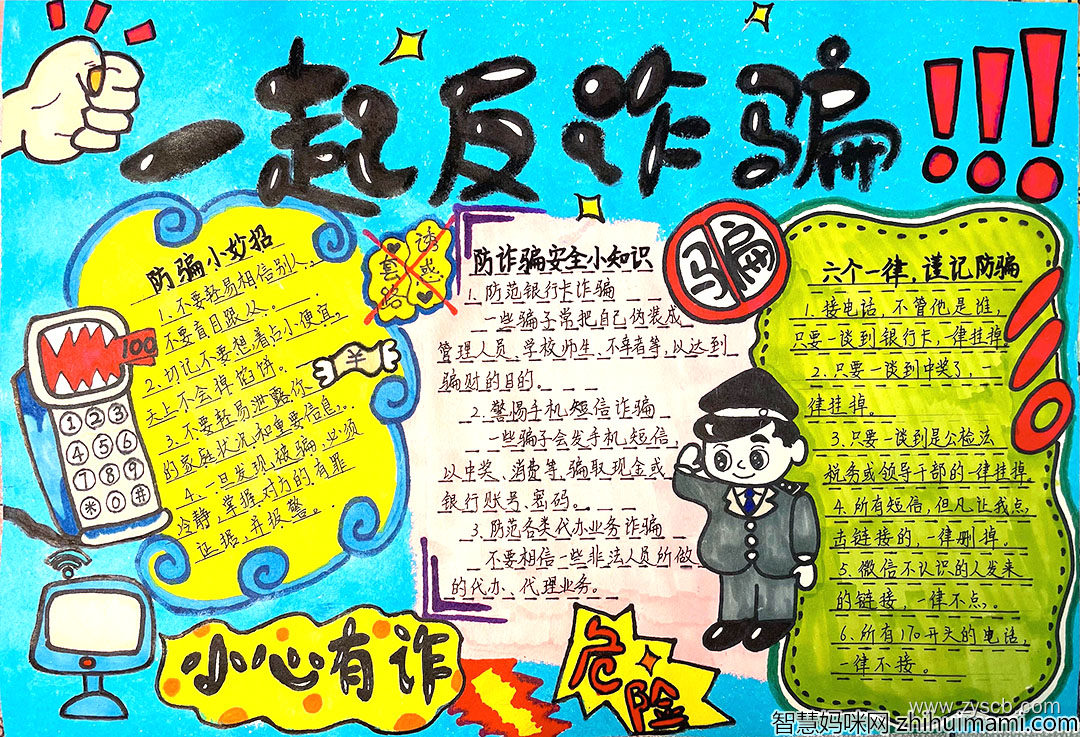 一起反诈骗
防骗小妙招
1.不要轻易相信别人,
不要盲目跟从.
2.切记不要想着占小便宜,
天上不会掉馅饼。
3.不要轻易泄露你
的家庭状况和重要信息,
4.一旦发现被骗,必须
冷静,掌握对方的有罪
证据,并报警。
100
¥
1 2 3
4 5 6
7 8 9
* 0 #
诱惑
套路
防诈骗安全小知识
1.防范银行卡诈骗
一些骗子常把自己伪装成
管理人员、学校师生、不幸者等,以达到
骗财的目的。
2.警惕手机短信诈骗
一些骗子会发手机短信,
以中奖、消费等,骗取现金或
银行账号、密码。
3.防范各类代办业务诈骗
不要相信一些非法人员所做
的代办、代理业务。
骗
六个一律,谨记防骗
1.接电话,不管他是谁,
只要一谈到银行卡,一律挂掉
2.只要一谈到中奖了,一
律挂掉。
3.只要一谈到是公检法
税务或领导干部的一律挂掉
4.所有短信,但凡让我点
击链接的,一律删掉。
5.微信不认识的人发来
的链接,一律不点。
6.所有170开头的电话,
一律不接。
小心有诈
危险
www.zyscb.com
智慧妈咪网 zhihuimami.com